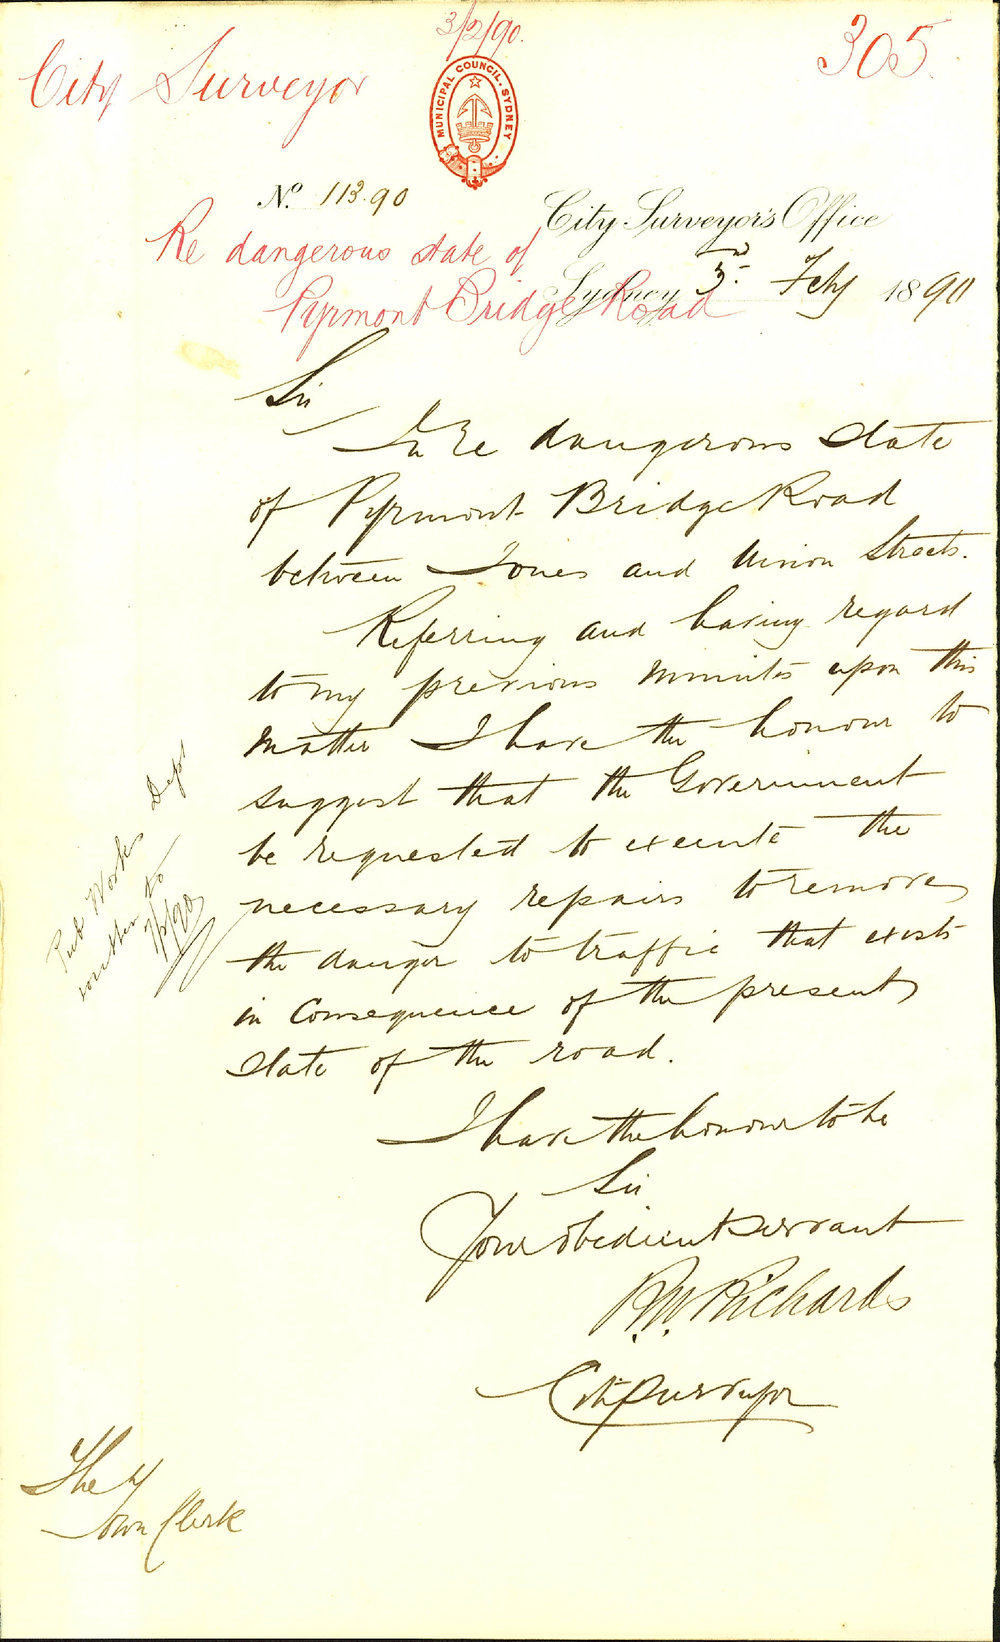 3/2/90.
305
City Surveyor
MUNICIPAL COUNCIL. SYDNEY
No. 113.90
City Surveyor's Office
Re dangerous state of
Sydney 3rd Feby 1890
Pyrmont Bridge Road
Sir
In re dangerous state
of Pyrmont Bridge Road
between Jones and Union Streets.
Referring and having regard
to my previous minutes upon this
matter I have the honour to
suggest that the Government
be requested to execute the
necessary repairs to remove
the danger to traffic that exists
in consequence of the present
state of the road.
Pub Works Dept
written to
I have the honour to be
Sir
Your obedient servant
R.W. Richards
City Surveyor
The
Town Clerk